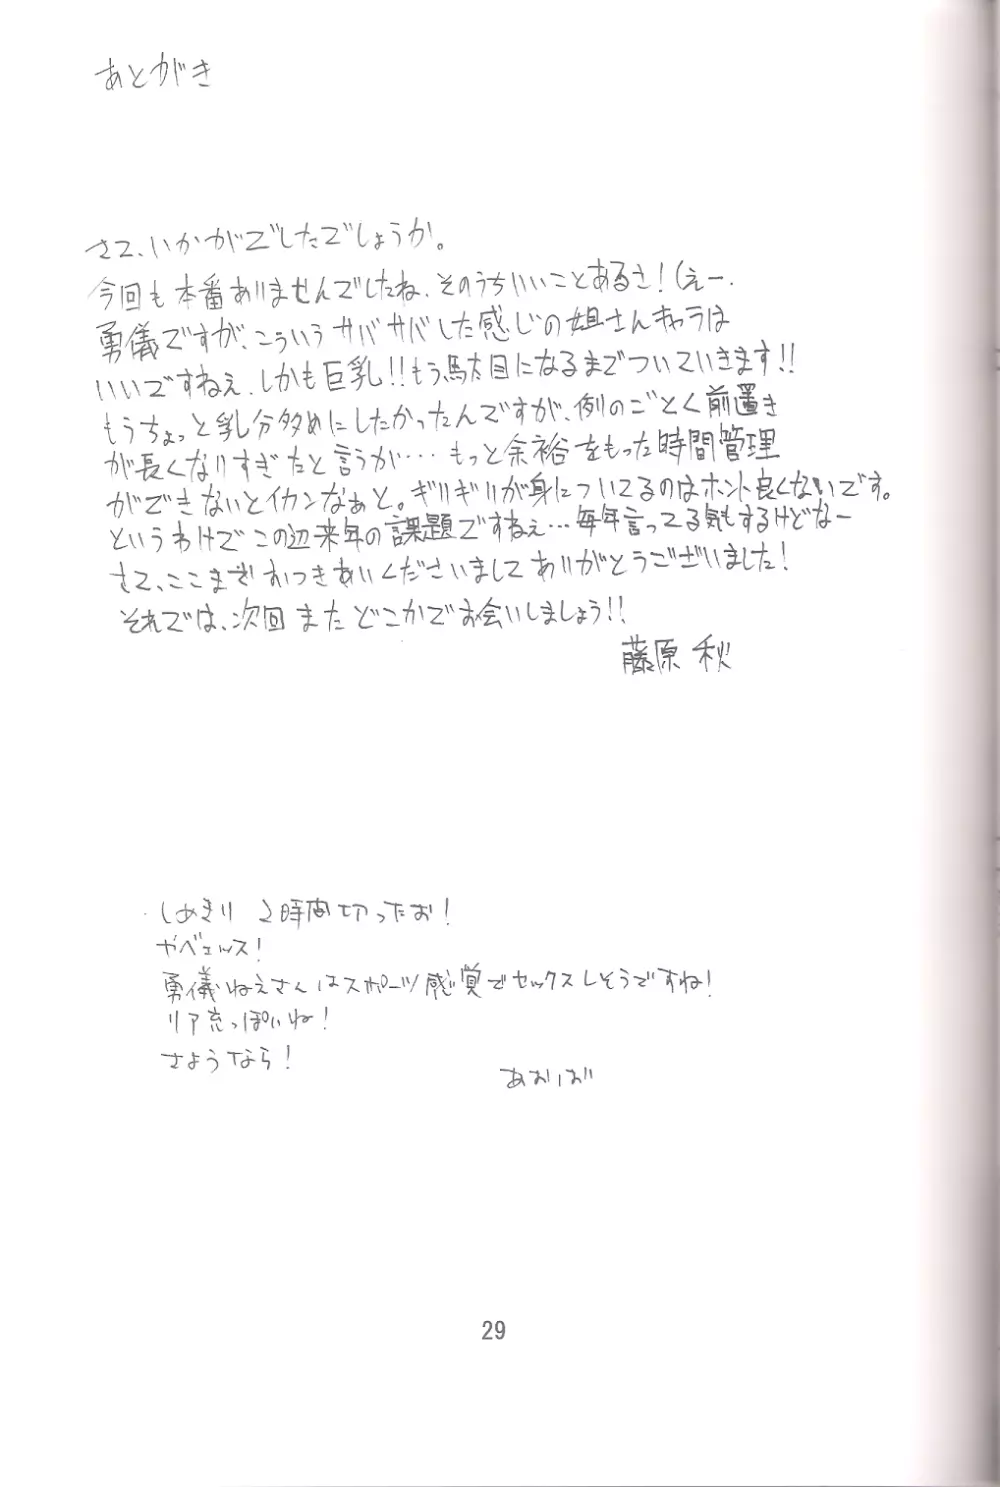 あとがき
さて、いかがでしたでしょうか。
今回も本番ありませんでしたね、そのうちいいことあるさ！(えー。
勇儀ですが、こういうサバサバした感じの姐さんキャラは
いいですねぇ、しかも巨乳!!もう駄目になるまでついていきます!!
もうちょっと乳分多めにしたかったんですが、例のごとく前置き
が長くなりすぎたと言うか…もっと余裕をもった時間管理
ができないとイカンなぁと。ギリギリが身についてるのはホント良くないです。
というわけでこの辺来年の課題ですねぇ…毎年言ってる気もするけどなー
さて、ここまでおつきあいくださいましてありがとうございました！
それでは、次回またどこかでお会いしましょう!!
藤原 秋
しめきり 2時間切ったお！
ヤベェッス！
勇儀ねえさんはスポーツ感覚でセックスしそうですね！
リア充っぽいね！
さようなら！
あおいば
29